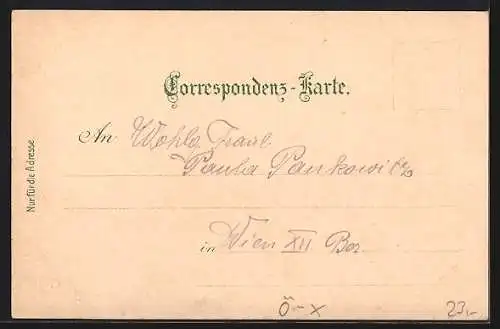 Correspondenz-Karte.
An Wohlg Fraul
Paula Pankowitz
in Wien XII Bez.
Nur für die Adresse
Ö-x
23,-